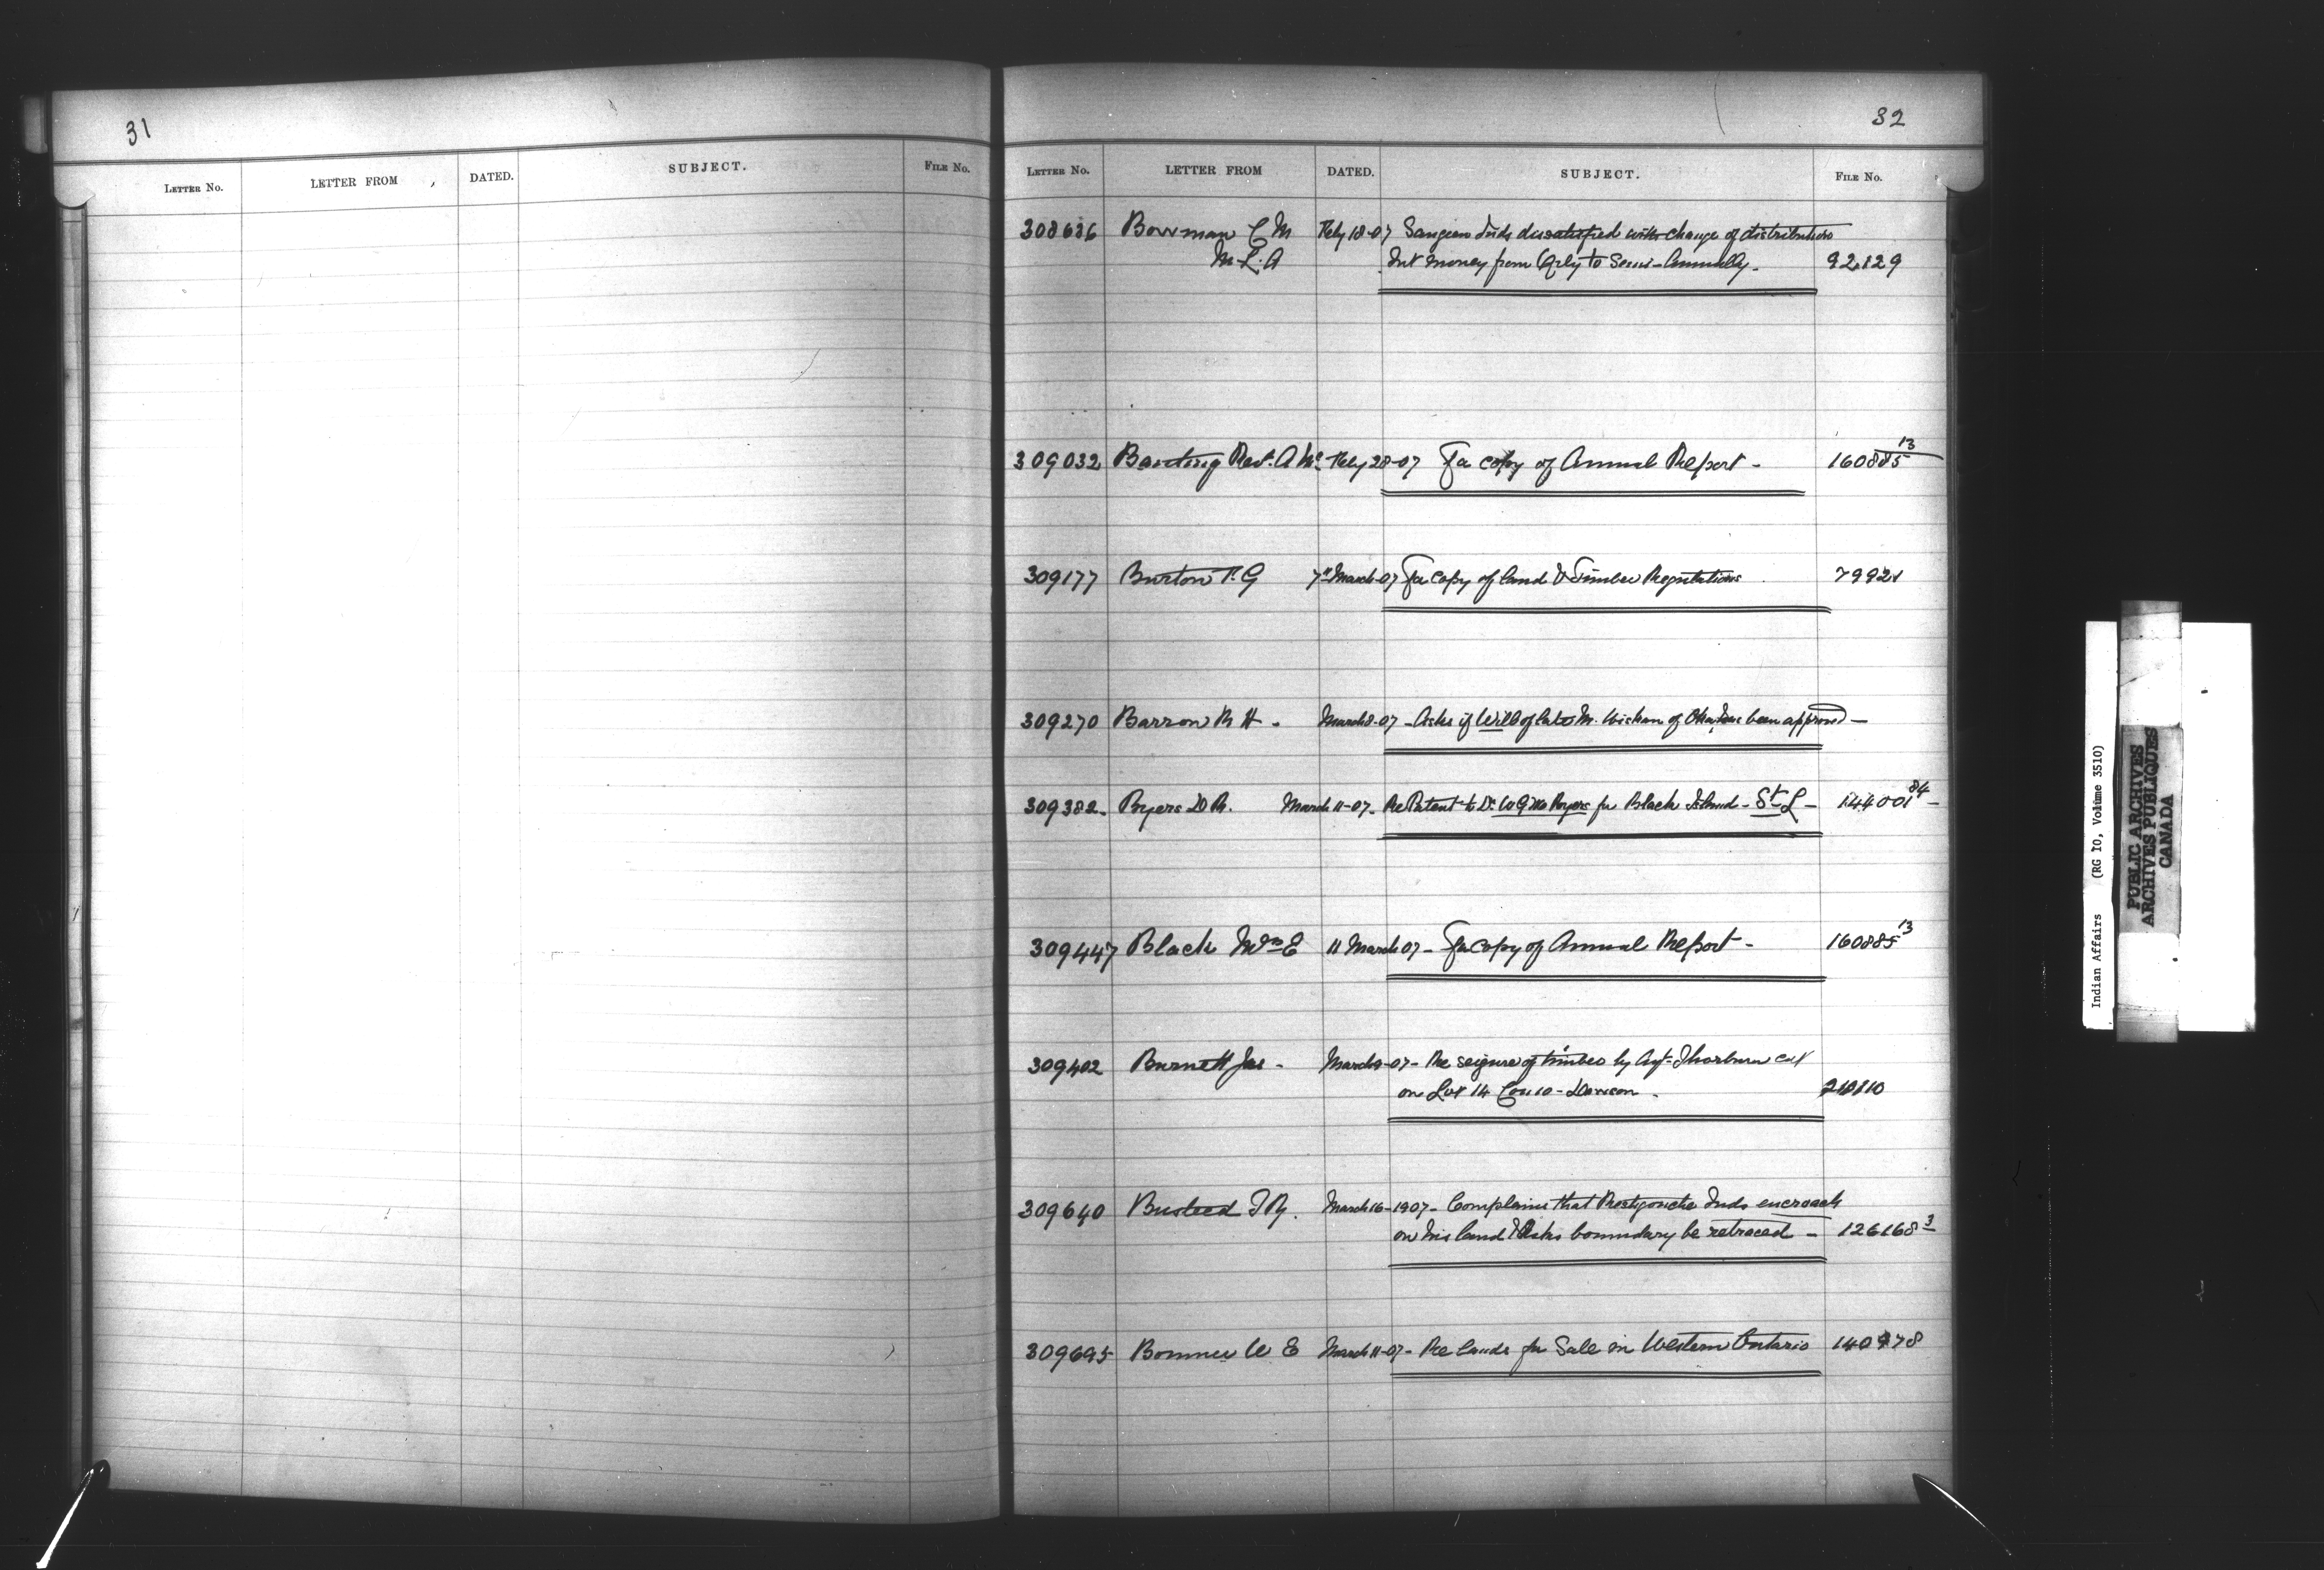 31
LETTER No. LETTER FROM DATED. SUBJECT. FILE No.
32
LETTER No. LETTER FROM DATED. SUBJECT. FILE No.
308636 Bowman C M Feby 18-07 Saugeen Inds dissatisfied with change of distribution
M.L.A Int money from Qrly to Semi-Annually. 92129
309032 Banting Revd. A Mc Feby 28-07 For copy of Annual Report - 160885 13
309177 Burton P. G 7th March-07 For copy of land & Timber Regulations 7992
309270 Barron R H - March 8-07 - Asks if Will of late M. of has been approved -
309382. Byers D R. March 11-07. Re Patent to Dr. W G M Byers for Black Island - St L - 144001 84 -
309447 Black Wm E 11 March 07 - For copy of Annual Report - 160885 13
309402 Burnett Jas - March 9-07 - Re seizure of timber by Agt Thorburn cut
on Lot 14 Con 10 - Dawson . 210110
309640 Busteed T R. March 16-1907 - Complains that Restigouche Inds encroach
on his land & Asks boundary be retraced - 126168 3
309695 W E March 11-07 - Re lands for Sale in Western Ontario 140978
Indian Affairs (RG 10, Volume 3510)
PUBLIC ARCHIVES
ARCHIVES PUBLIQUES
CANADA